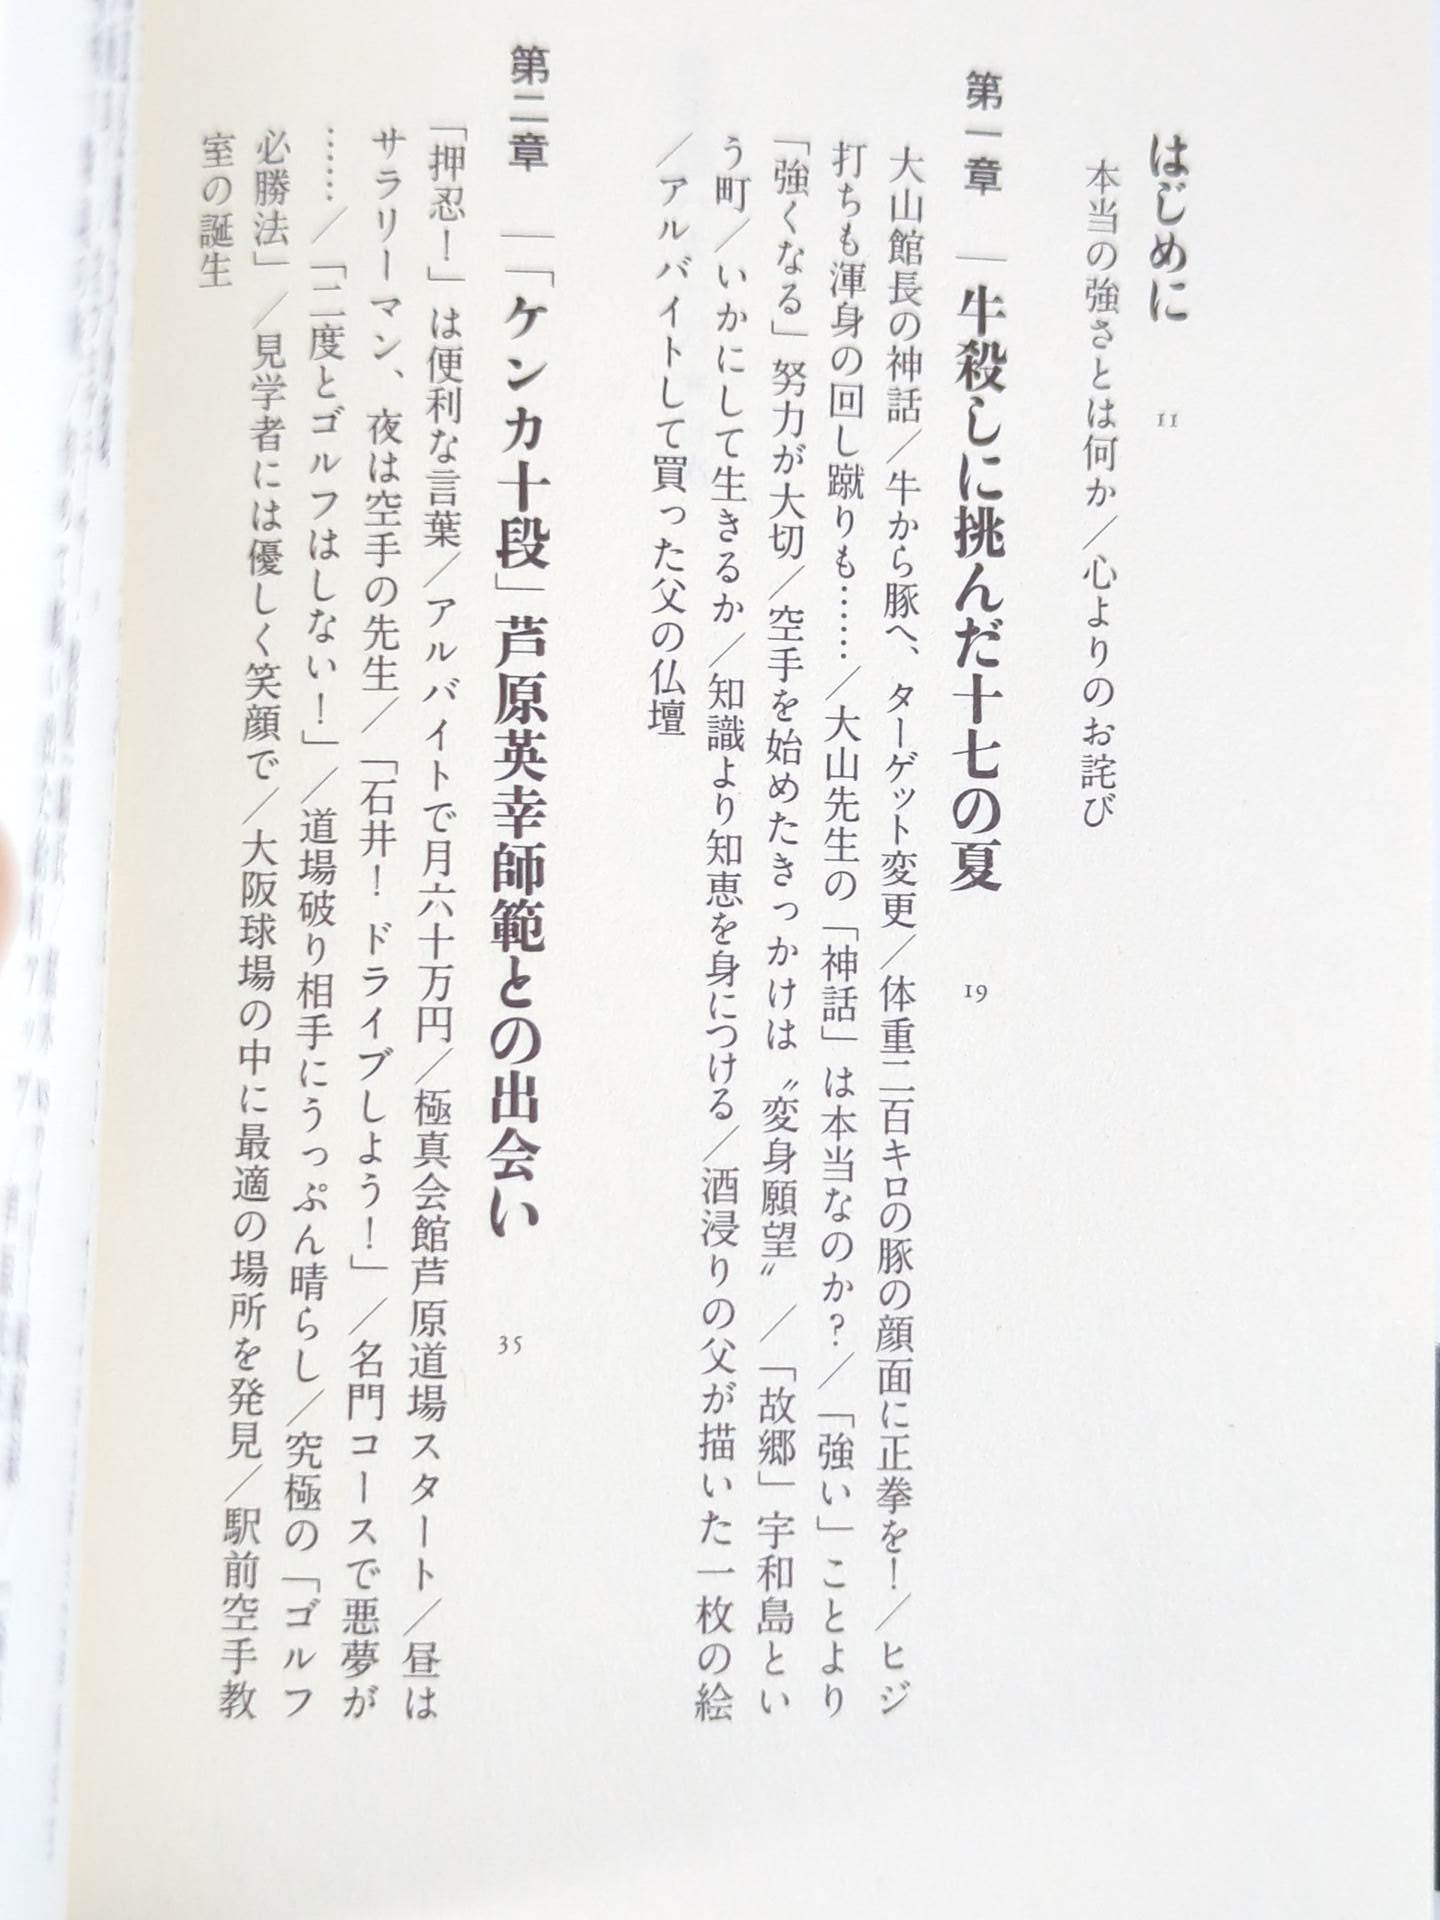 はじめに 11
本当の強さとは何か／心よりのお詫び
第一章 ― 牛殺しに挑んだ十七の夏 19
大山館長の神話／牛から豚へ、ターゲット変更／体重二百キロの豚の顔面に正拳を！／ヒジ
打ちも渾身の回し蹴りも……／大山先生の「神話」は本当なのか？／「強い」ことより
「強くなる」努力が大切／空手を始めたきっかけは〝変身願望〟／「故郷」宇和島とい
う町／いかにして生きるか／知識より知恵を身につける／酒浸りの父が描いた一枚の絵
／アルバイトして買った父の仏壇
第二章 ― 「ケンカ十段」芦原英幸師範との出会い 35
「押忍！」は便利な言葉／アルバイトで月六十万円／極真会館芦原道場スタート／昼は
サラリーマン、夜は空手の先生／「石井！ ドライブしよう！」／名門コースで悪夢が
……／「二度とゴルフはしない！」／道場破り相手にうっぷん晴らし／究極の「ゴルフ
必勝法」／見学者には優しく笑顔で／大阪球場の中に最適の場所を発見／駅前空手教
室の誕生